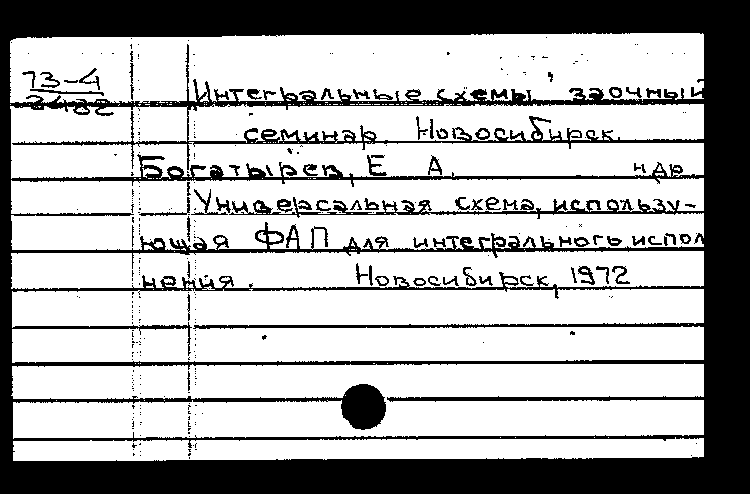 73-4
3482
Интегральные схемы, заочный
семинар. Новосибирск.
Богатырев, Е А. и др
Универсальная схема, использу-
ющая ФАП для интегрального испол
нения. Новосибирск, 1972